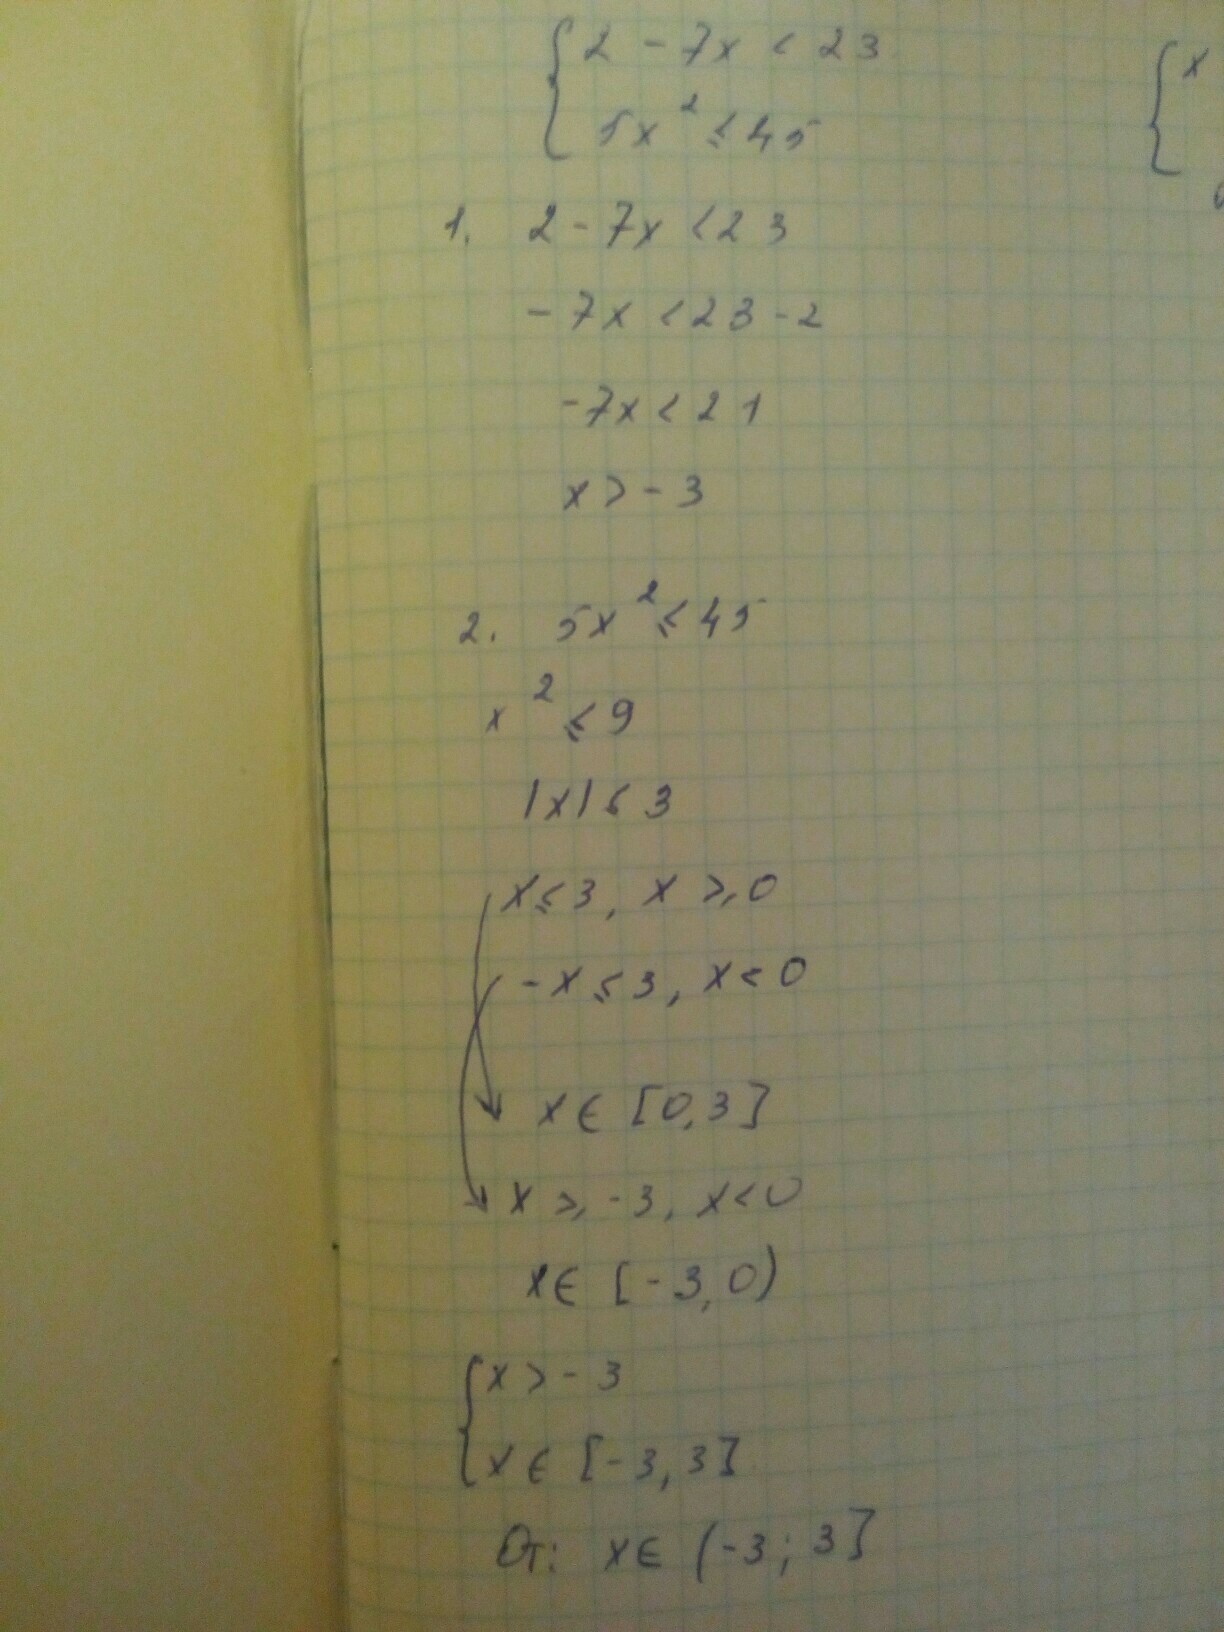 { 2 - 7x < 23
5x² ≤ 45
{ x
1. 2 - 7x < 23
-7x < 23 - 2
-7x < 21
x > -3
2. 5x² ≤ 45
x² ≤ 9
|x| ≤ 3
x ≤ 3, x ≥ 0
-x ≤ 3, x < 0
x ∈ [0, 3]
x ≥ -3, x < 0
x ∈ [-3, 0)
{ x > -3
x ∈ [-3, 3]
От: x ∈ (-3; 3]